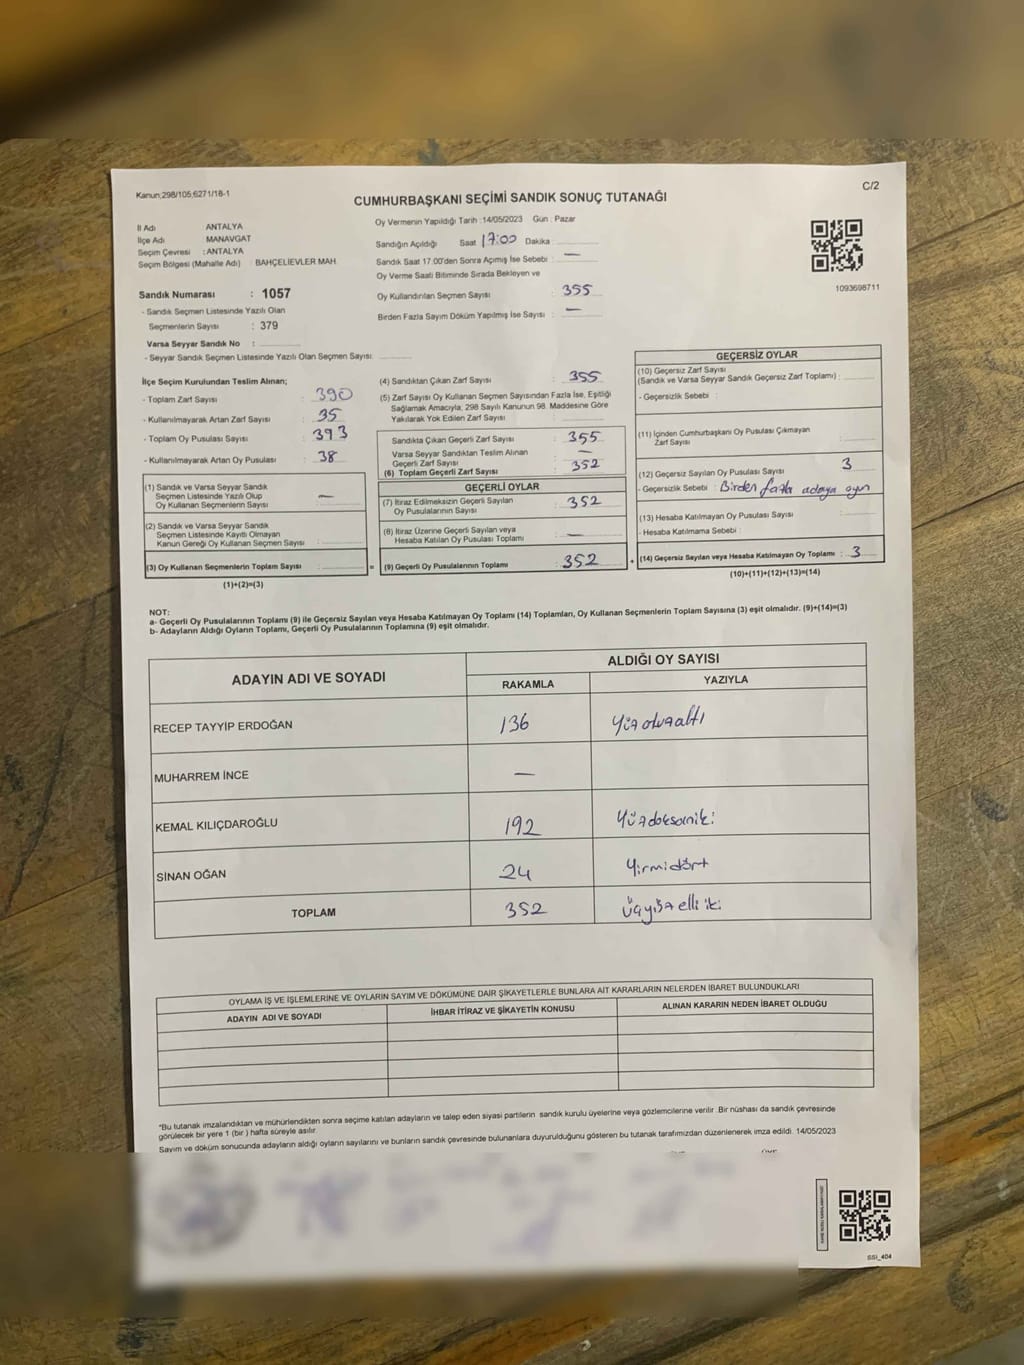 Kanun;298/105;6271/18-1
C/2
CUMHURBAŞKANI SEÇİMİ SANDIK SONUÇ TUTANAĞI
İl Adı ANTALYA
İlçe Adı MANAVGAT
Seçim Çevresi : ANTALYA
Seçim Bölgesi (Mahalle Adı) : BAHÇELİEVLER MAH.
Sandık Numarası : 1057
- Sandık Seçmen Listesinde Yazılı Olan
Seçmenlerin Sayısı : 379
Varsa Seyyar Sandık No :
- Seyyar Sandık Seçmen Listesinde Yazılı Olan Seçmen Sayısı:
Oy Vermenin Yapıldığı Tarih :14/05/2023 Gün : Pazar
Sandığın Açıldığı Saat 17:00 Dakika
Sandık Saat 17.00'den Sonra Açımış İse Sebebi : —
Oy Verme Saati Bitiminde Sırada Bekleyen ve
Oy Kullandırılan Seçmen Sayısı : 355
Birden Fazla Sayım Döküm Yapılmış İse Sayısı : —
1093698711
İlçe Seçim Kurulundan Teslim Alınan;
- Toplam Zarf Sayısı : 390
- Kullanılmayarak Artan Zarf Sayısı : 35
- Toplam Oy Pusulası Sayısı : 393
- Kullanılmayarak Artan Oy Pusulası : 38
(1) Sandık ve Varsa Seyyar Sandık
Seçmen Listesinde Yazılı Olup
Oy Kullanan Seçmenlerin Sayısı : —
(2) Sandık ve Varsa Seyyar Sandık
Seçmen Listesinde Kayıtlı Olmayan
Kanun Gereği Oy Kullanan Seçmen Sayısı :
(3) Oy Kullanan Seçmenlerin Toplam Sayısı :
(1)+(2)=(3)
(4) Sandıktan Çıkan Zarf Sayısı : 355
(5) Zarf Sayısı Oy Kullanan Seçmen Sayısından Fazla İse, Eşitliği
Sağlamak Amacıyla; 298 Sayılı Kanunun 98. Maddesine Göre
Yakılarak Yok Edilen Zarf Sayısı :
Sandıkta Çıkan Geçerli Zarf Sayısı : 355
Varsa Seyyar Sandıktan Teslim Alınan
Geçerli Zarf Sayısı : —
(6) Toplam Geçerli Zarf Sayısı : 352
GEÇERLİ OYLAR
(7) İtiraz Edilmeksizin Geçerli Sayılan
Oy Pusulalarının Sayısı : 352
(8) İtiraz Üzerine Geçerli Sayılan veya
Hesaba Katılan Oy Pusulası Toplamı : —
= (9) Geçerli Oy Pusulalarının Toplamı : 352
GEÇERSİZ OYLAR
(10) Geçersiz Zarf Sayısı
(Sandık ve Varsa Seyyar Sandık Geçersiz Zarf Toplamı) :
- Geçersizlik Sebebi :
(11) İçinden Cumhurbaşkanı Oy Pusulası Çıkmayan
Zarf Sayısı :
(12) Geçersiz Sayılan Oy Pusulası Sayısı : 3
- Geçersizlik Sebebi : Birden fazla adaya oyun
(13) Hesaba Katılmayan Oy Pusulası Sayısı :
- Hesaba Katılmama Sebebi :
+ (14) Geçersiz Sayılan veya Hesaba Katılmayan Oy Toplamı : 3
(10)+(11)+(12)+(13)=(14)
NOT:
a- Geçerli Oy Pusulalarının Toplamı (9) ile Geçersiz Sayılan veya Hesaba Katılmayan Oy Toplamı (14) Toplamları, Oy Kullanan Seçmenlerin Toplam Sayısına (3) eşit olmalıdır. (9)+(14)=(3)
b- Adayların Aldığı Oyların Toplamı, Geçerli Oy Pusulalarının Toplamına (9) eşit olmalıdır.
ADAYIN ADI VE SOYADI ALDIĞI OY SAYISI
RAKAMLA YAZIYLA
RECEP TAYYİP ERDOĞAN 136 Yüzotuzaltı
MUHARREM İNCE —
KEMAL KILIÇDAROĞLU 192 Yüzdoksaniki
SİNAN OĞAN 24 Yirmidört
TOPLAM 352 Üçyüzelliiki
OYLAMA İŞ VE İŞLEMLERİNE VE OYLARIN SAYIM VE DÖKÜMÜNE DAİR ŞİKAYETLERLE BUNLARA AİT KARARLARIN NELERDEN İBARET BULUNDUKLARI
ADAYIN ADI VE SOYADI İHBAR İTİRAZ VE ŞİKAYETİN KONUSU ALINAN KARARIN NEDEN İBARET OLDUĞU
*Bu tutanak imzalandıktan ve mühürlendikten sonra seçime katılan adayların ve talep eden siyasi partilerin sandık kurulu üyelerine veya gözlemcilerine verilir. Bir nüshası da sandık çevresinde
görülecek bir yere 1 (bir ) hafta süreyle asılır.
Sayım ve döküm sonucunda adayların aldığı oyların sayılarını ve bunların sandık çevresinde bulunanlara duyurulduğunu gösteren bu tutanak tarafımızdan düzenlenerek imza edildi. 14/05/2023
SSI_404